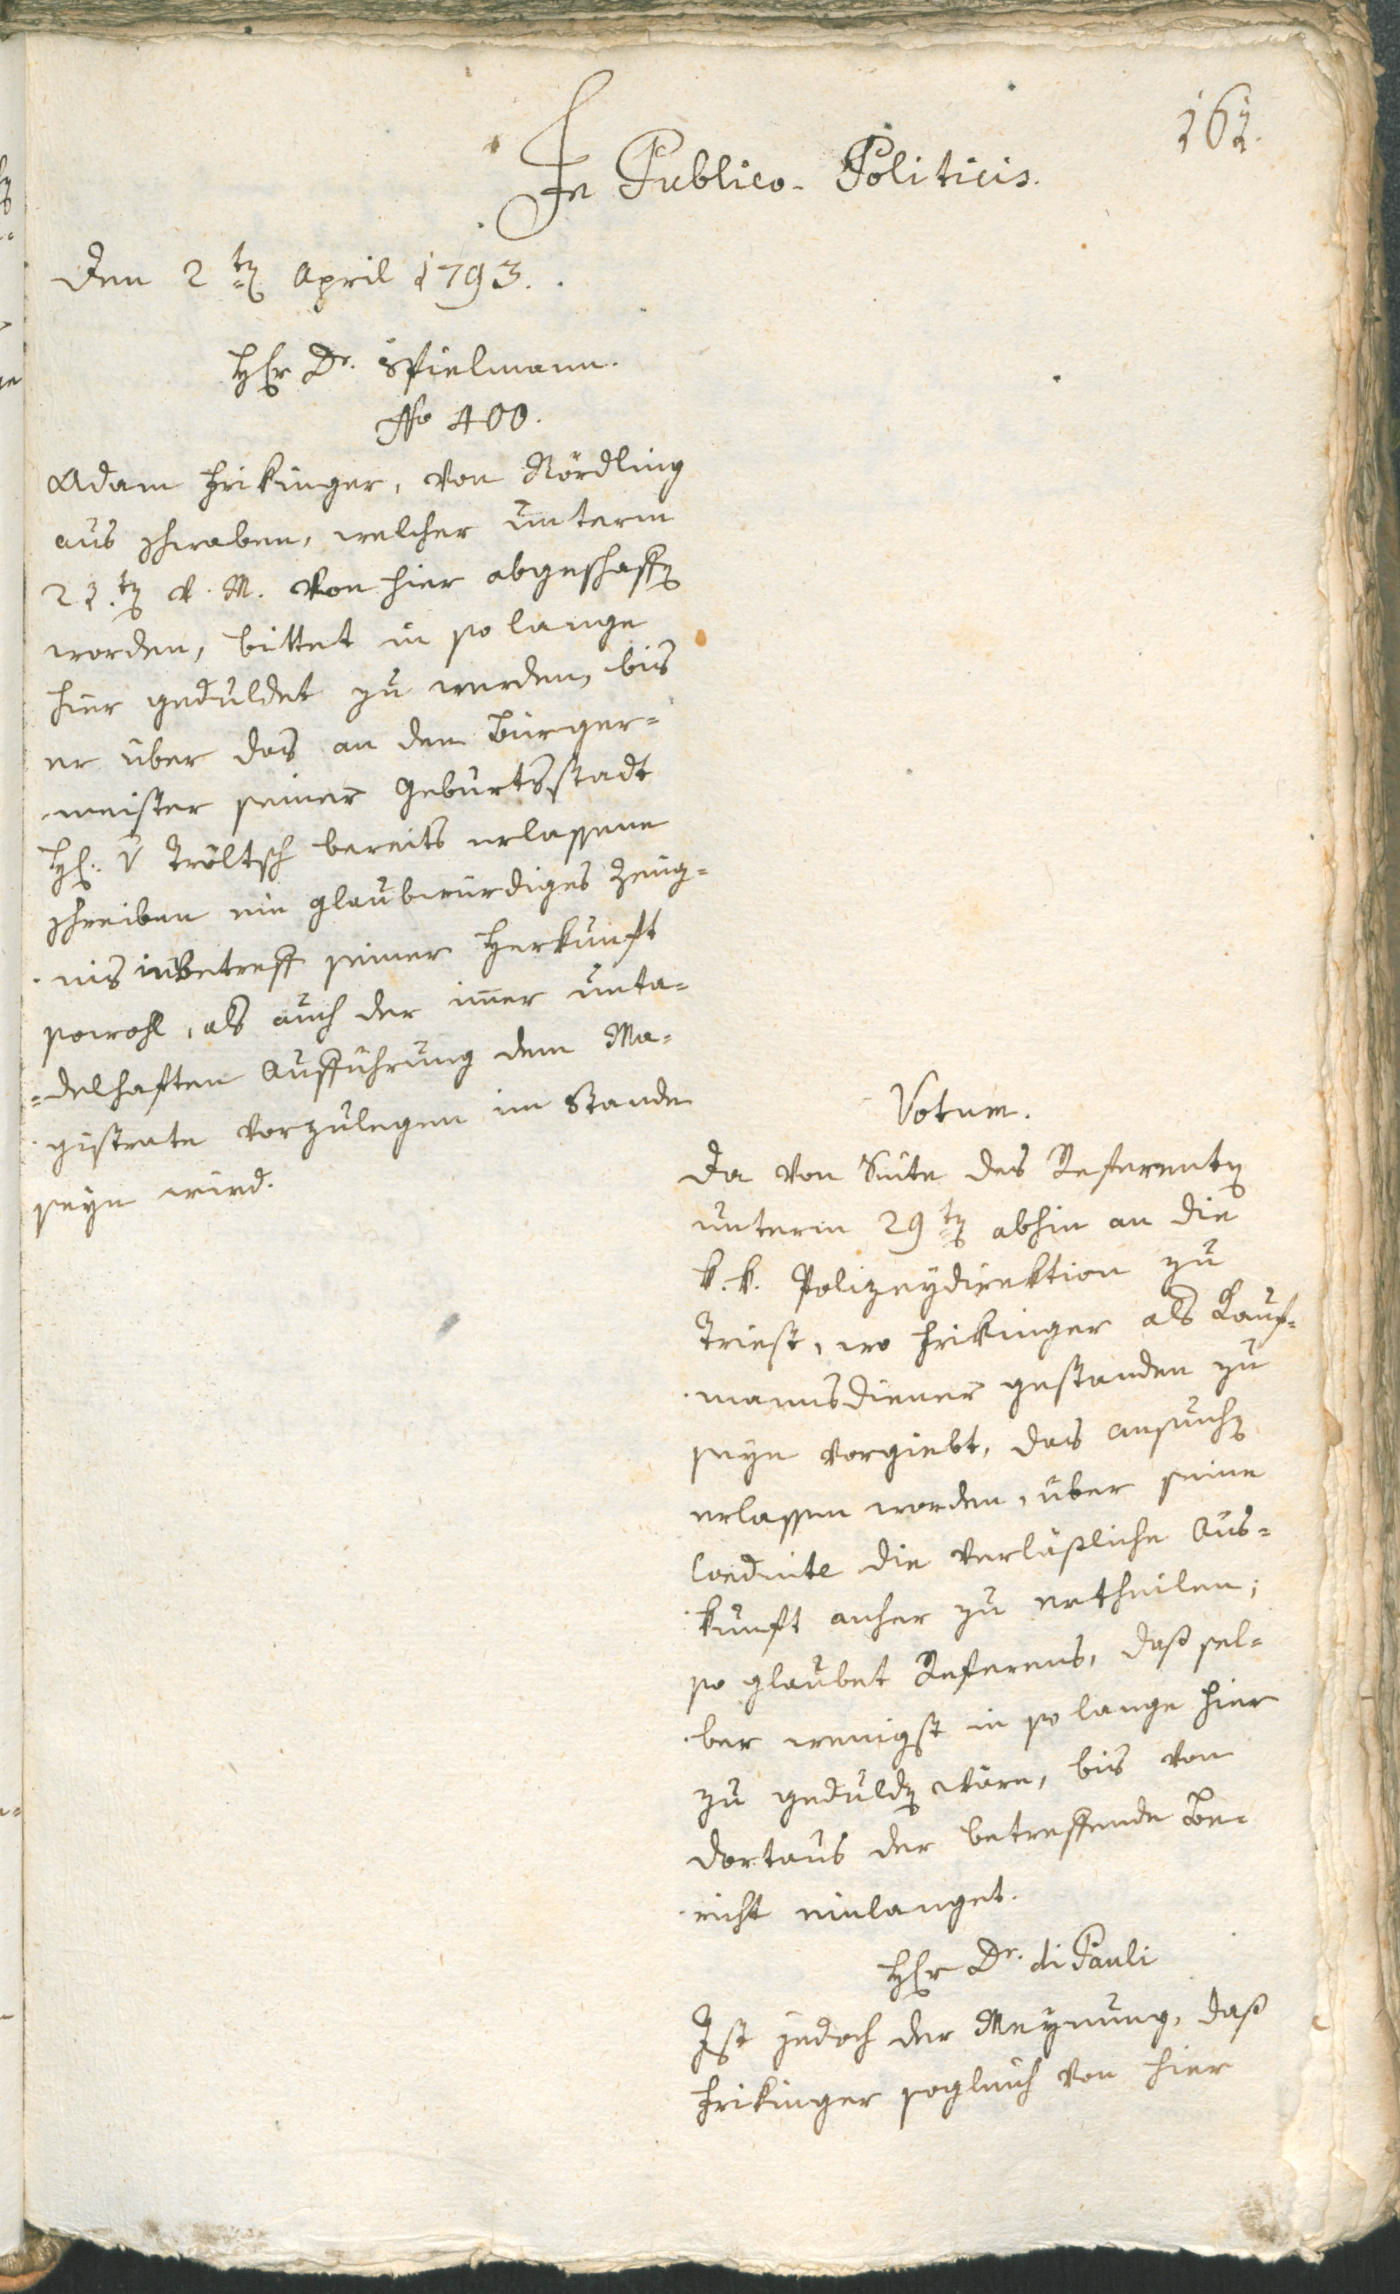 161.
In Publico-Politicis.
Den 2ten April 1793.
HE Dr. Spielmann.
No 400.
Adam Frikinger, von Nördling
aus Schwaben, welcher unterm
21.ten v. M. von hier abgeschaffen
worden, bittet in so lange
hier geduldet zu werden, bis
er über das an den Bürger=
meister seiner Geburtsstadt
H. v Tröltsch bereits erlassene
Schreiben ein glaubwürdiges Zeug=
nis inbetreff seiner Herkunft
sowohl, als auch der imer unta=
=delhaften Aufführung dem Ma=
gistrate vorzulegen im Stande
seyn wird.
Votum.
Da von Seite des Referenten
unterm 29ten abhin an die
k. k. Polizeydirektion zu
Triest, wo Frikinger als Kauf=
mannsdiener gestanden zu
seyn vorgiebt, das Ansuchen
erlassen worden, über seine
Conduite die verläßliche Aus=
kunft anher zu ertheilen;
so glaubet Referens, daß sel=
ber wenigst in so lange hier
zu gedulden wäre, bis von
dortaus der betreffende Be=
richt einlanget.
HE Dr. di Pauli
Ist jedoch der Meynung, daß
Frikinger sogleich von hier